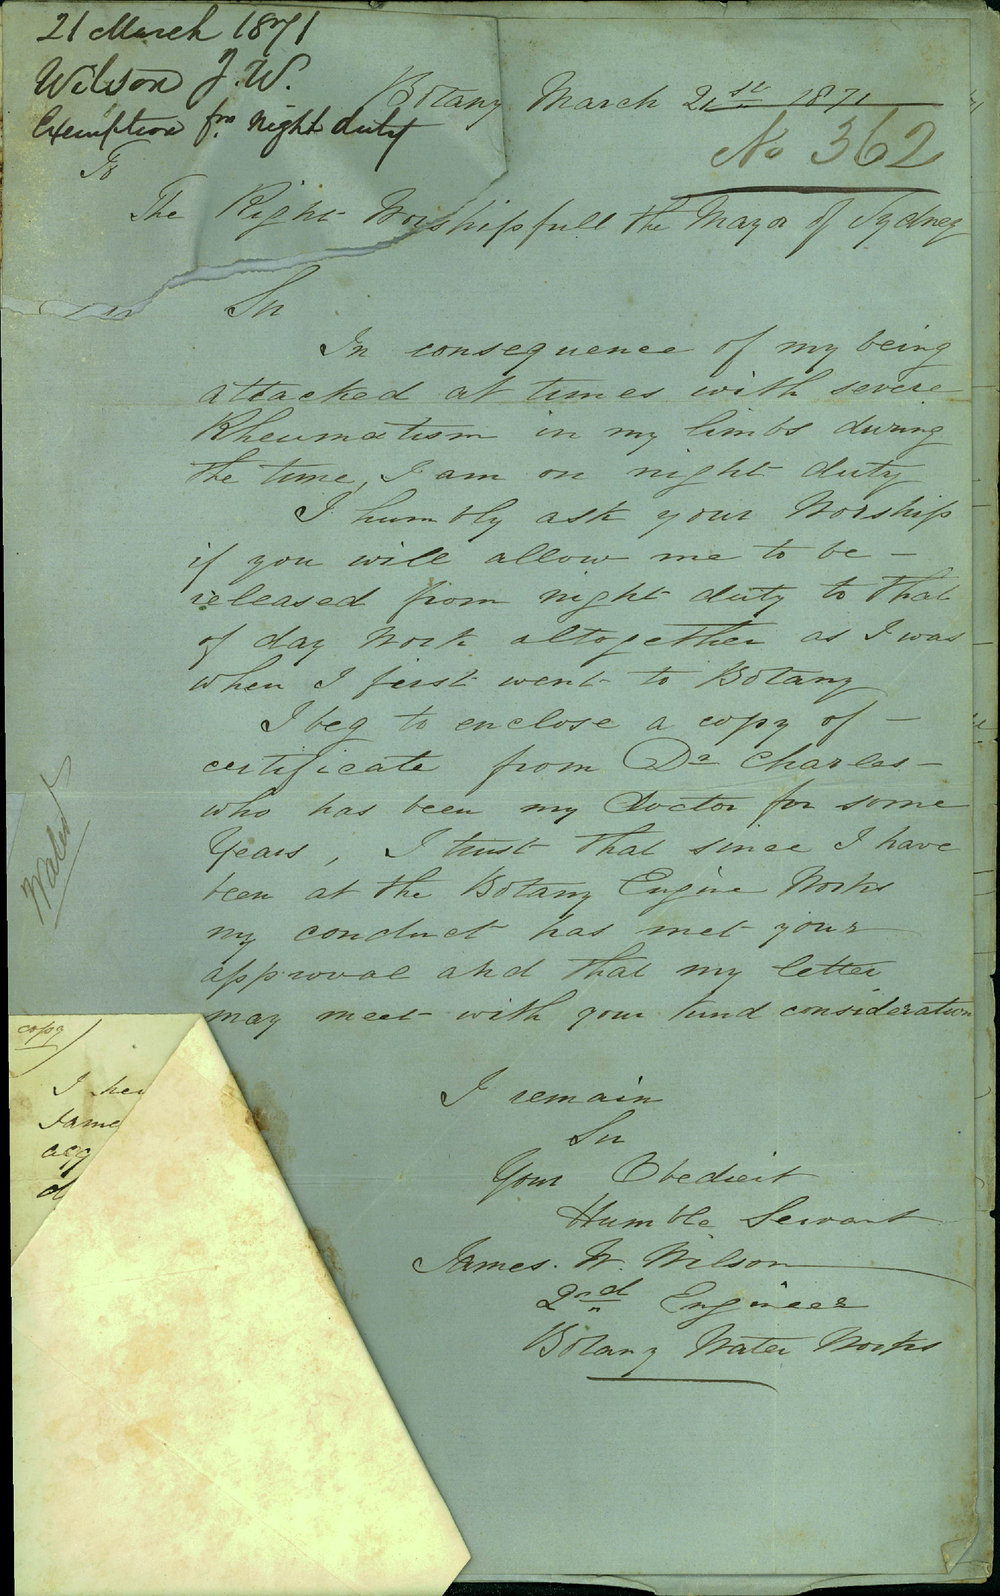 21 March 1871
Wilson J. W.
Exemption fm night duty
Botany March 21st 1871
No 362
To
The Right Worshipfull the Mayor of Sydney
Sir
In consequence of my being
attacked at times with severe
Rheumatism in my limbs during
the time, I am on night duty
I humbly ask your Worship
if you will allow me to be –
released from night duty to that
of day work altogether as I was –
when I first went to Botany
I beg to enclose a copy of –
certificate from Dr Charles –
who has been my Doctor for some
Years, I trust that since I have
been at the Botany Engine Works
my conduct has met your
approval and that my letter
may meet with your kind consideration
Water
copy
I remain
Sir
Your Obedient
Humble Servant
James. W. Wilson
2nd Engineer
Botany Water Works
I